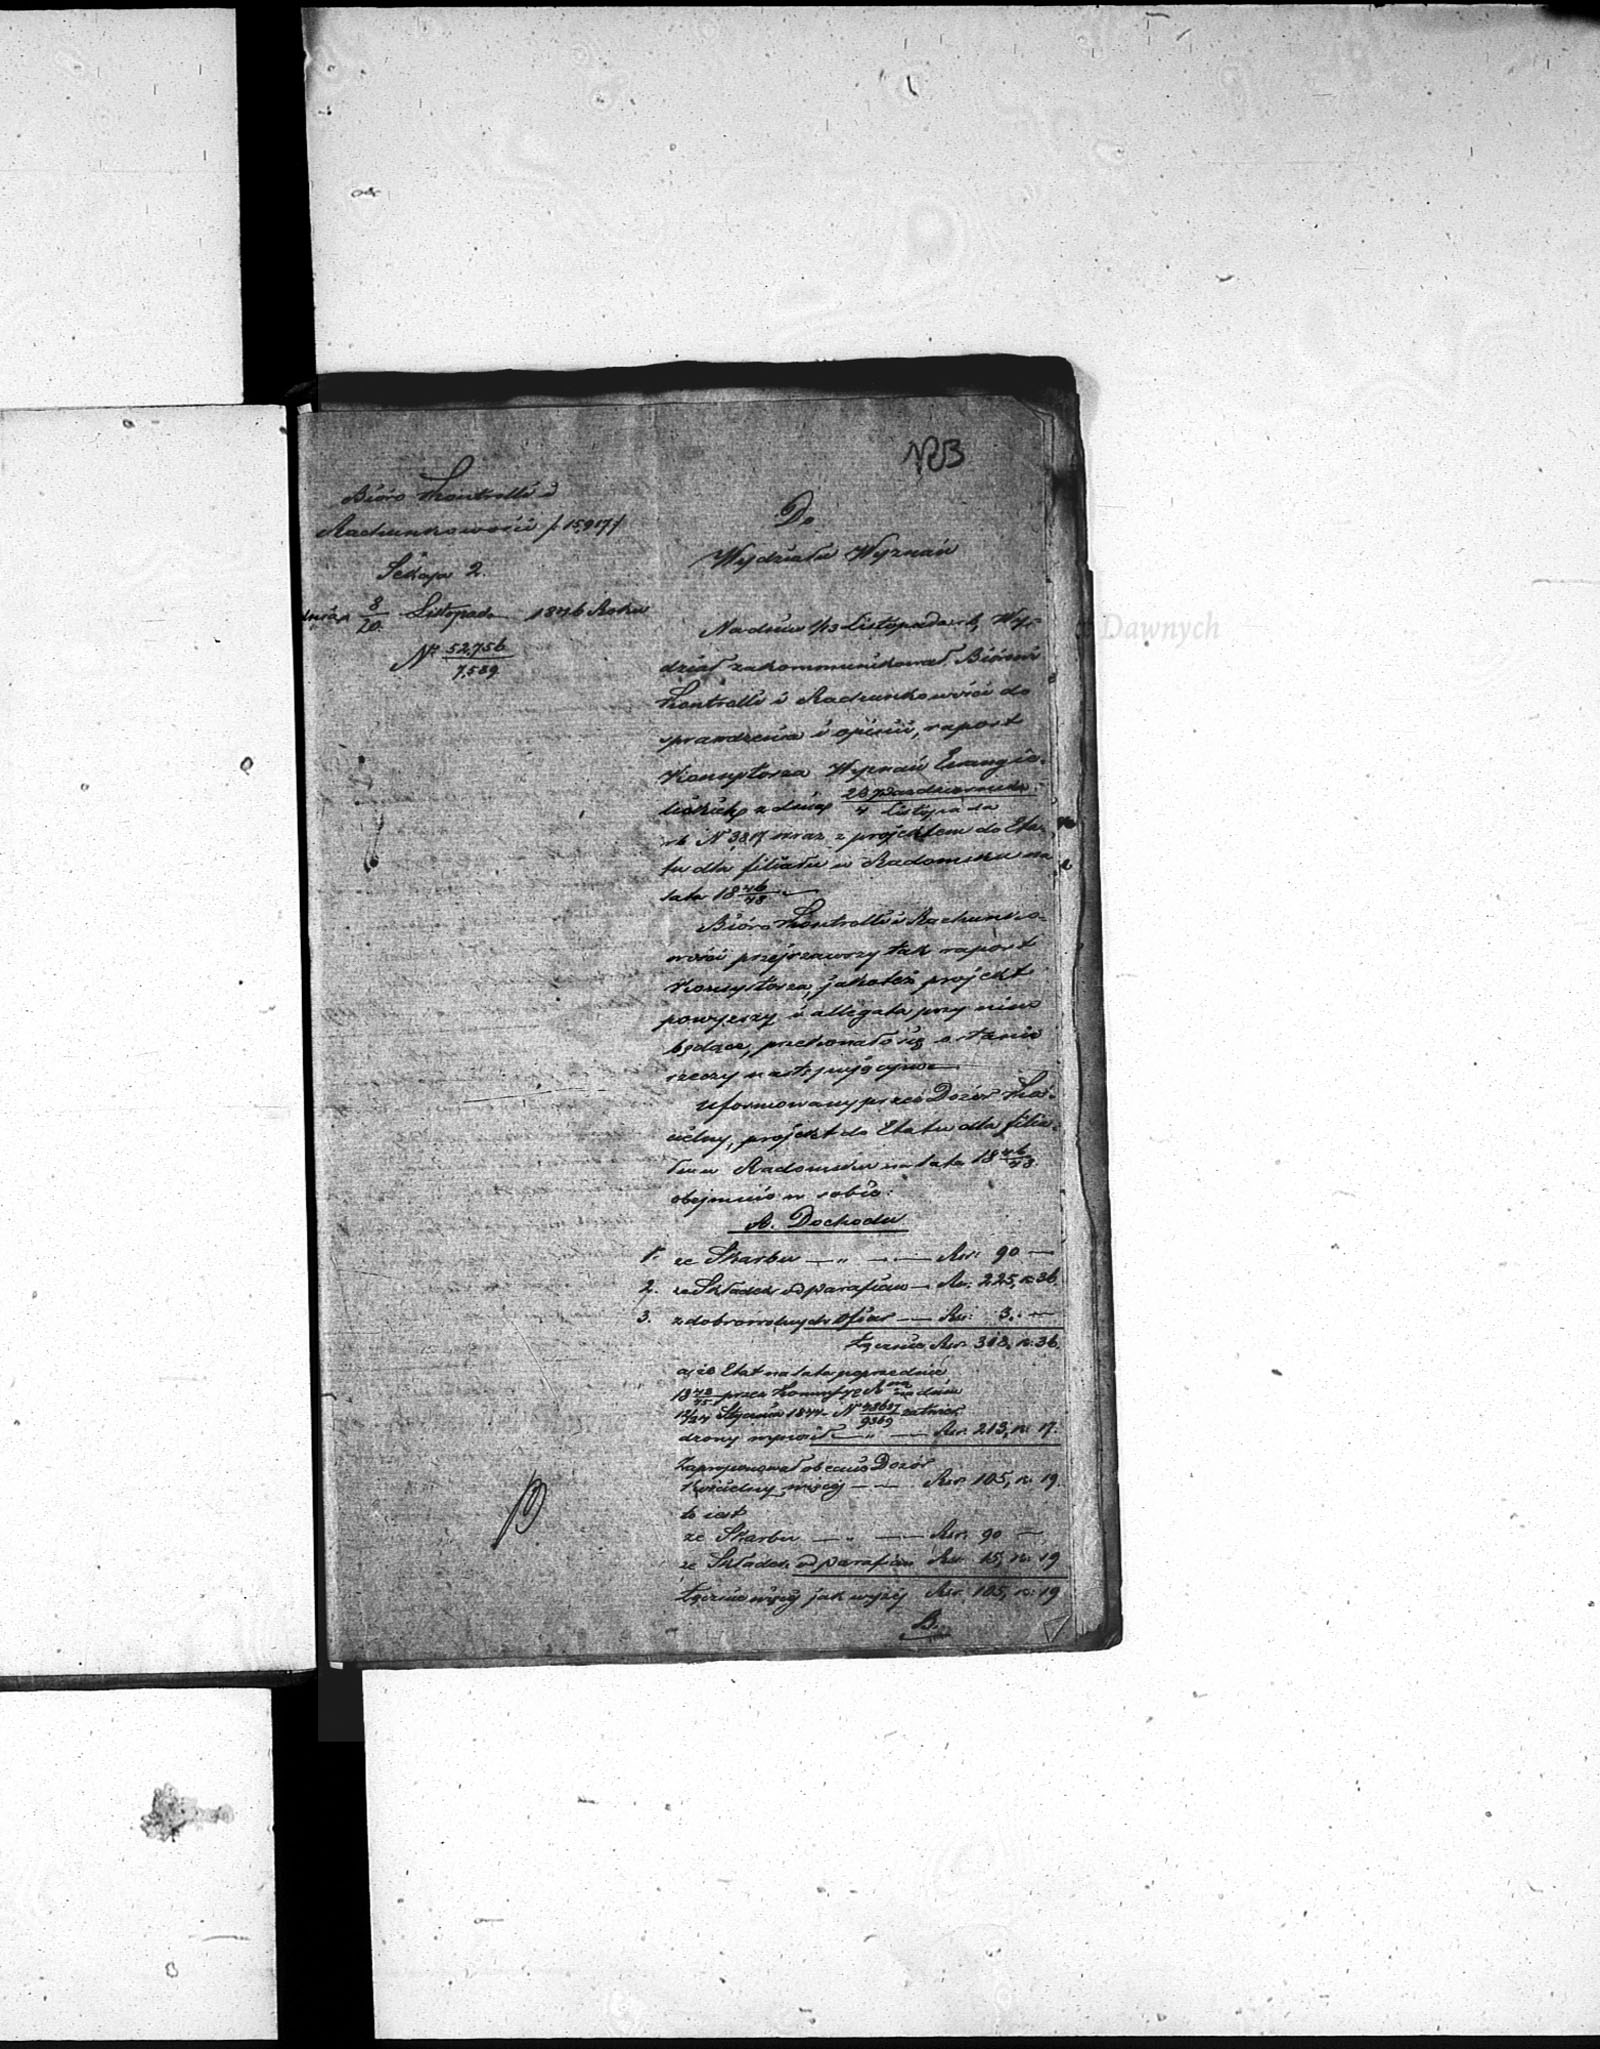 NB
Bióro Kontrolli i
Rachunkowości /: 15,917 :/
Sekcja 2.
dnia 8/20 Listopada 1846 Roku
Nr 52,756/7,589
Do
Wydziału Wyznań
Na dniu 1/13 Listopada r.b. Wy-
dział zakommunikował Biórowi
Kontrolli i Rachunkowości do
sprawdzenia i opinii, raport
Konsystorza Wyznań Ewangie-
lickich z dnia 23 Października/4 Listopada
r.b. N 3817 wraz z projektem do Eta-
tu dla filiału w Radomsku na
lata 1846/48
Bióro Kontrolli i Rachunko-
wości przejrzawszy tak raport
Konsystorza, jakoteż projekt
powyższy i allegata przy nim
będące, przekonało się o stanie
rzeczy następującym
Uformowany przez Dozór Koś-
cielny, projekt do Etatu dla filia-
łu w Radomsku na lata 1846/48
obejmuie w sobie:
A. Dochodu
1. ze Skarbu — „ — Rsr. 90 —
2. ze Składek od parafian — Rsr. 225, k. 36.
3. z dobrowolnych Ofiar — Rsr. 3. —
Łącznie Rsr. 318, k. 36.
a że Etat na lata poprzednie
1843/45 przez Kommissyę R na dniu
12/24 Stycznia 1844 N 48687/9369 zatwier-
dzony wynosił — „ — Rsr. 213, k. 17.
Zaproponował obecnie Dozór
Kościelny więcej — Rsr. 105, k. 19.
to iest
ze Skarbu — „ — Rsr. 90 —
ze Składek od parafian Rsr. 15, k. 19
Łącznie więcej jak wyżej Rsr. 105, k. 19
B.
Dawnych